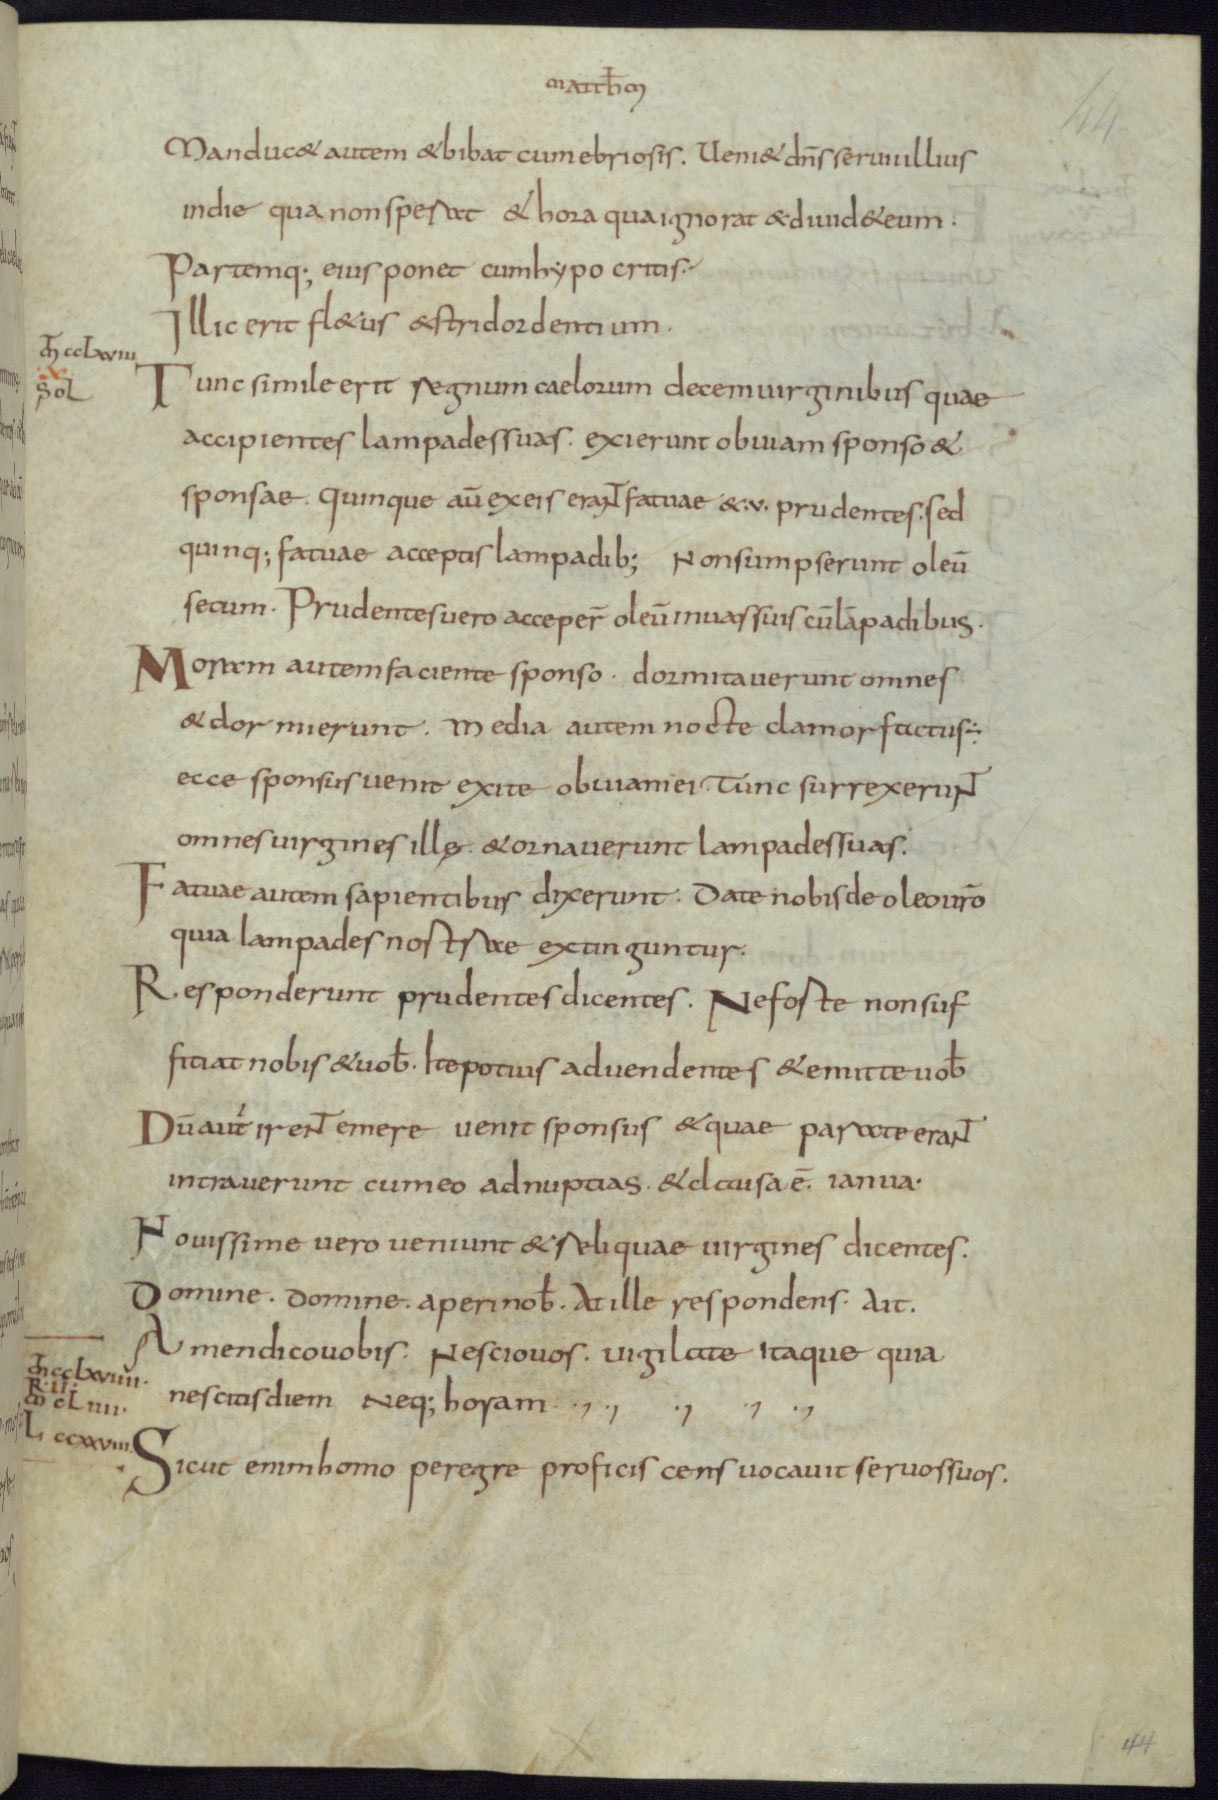 matthm̄
44
Manduc& autem & bibat cum ebriosis. Ueni& dns̄ serui illius
in die qua non sperat & hora qua ignorat & diuid& eum.
Partemq; eius ponet cum hypocritis.
Illic erit fl&us & stridor dentium.
m̄ cclxviii
x
Sol
Tunc simile erit regnum caelorum decem uirginibus quae
accipientes lampades suas. exierunt obuiam sponso &
sponsae. Quinque aū ex eis erant fatuae & .v. prudentes. sed
quinq; fatuae acceptis lampadib; Non sumpserunt oleū
secum. Prudentes uero acceper̄ oleū in uassuis cū lāpadibus.
Moram autem faciente sponso. dormitauerunt omnes
& dormierunt. Media autem nocte clamor factus:
ecce sponsus uenit exite obuiam ei. Tunc surrexerunt
omnes uirgines illę. & ornauerunt lampades suas.
Fatuae autem sapientibus dixerunt. Date nobis de oleo ur̄o
quia lampades nostrae extinguntur.
Responderunt prudentes dicentes. Ne foste non suf
fitiat nobis & uob̄. Ite potius ad uendentes & emitte uob̄
Dū aut̄ irent emere uenit sponsus & quae paratae erant
intrauerunt cum eo ad nuptias. & clausa ē. ianua.
Nouissime uero ueniunt & reliquae uirgines dicentes.
Domine. domine. aperi nob̄. At ille respondens. Ait.
Amen dico uobis. Nescio uos. uigilate itaque quia
m̄ cclxviiii.
R. II.
m̄ cliiii.
L. ccxxviii
nescitis diem Neq; horam.
Sicut enim homo peregre proficiscens uocauit seruos suos.
44